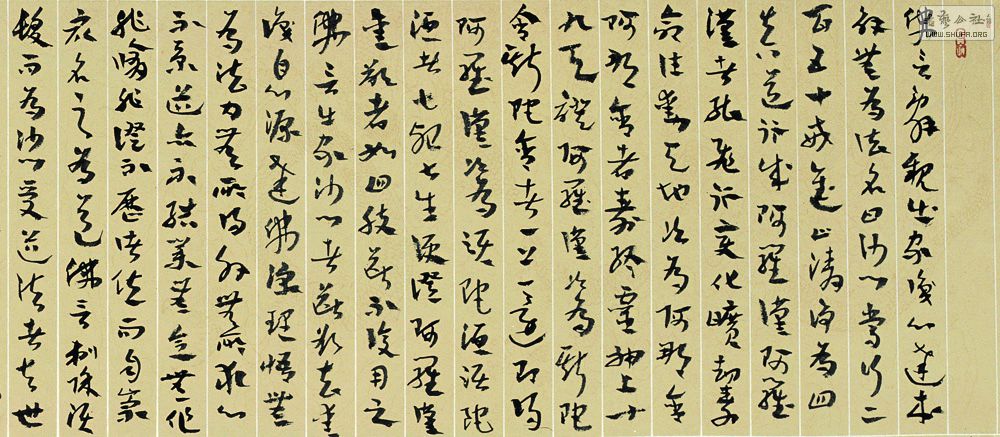 佛言辭親出家識心達本
解無為法名曰沙門常行二
百五十戒進止清淨為四
真道行成阿羅漢阿羅
漢者能飛行變化曠劫壽
命住動天地次為阿那含
阿那含者壽終靈神上十
九天證阿羅漢次為斯陀
含斯陀含者一上一還即得
阿羅漢次為須陀洹須陀
洹者七死七生便證阿羅漢
愛欲斷者如四肢斷不復用之
佛言出家沙門者斷欲去愛
識自心源達佛深理悟無
為法內無所得外無所求心
不系道亦不結業無念無作
非修非證不歷諸位而自崇
最名之為道佛言剃除鬚
髮而為沙門受道法者去世
WWW.SHUFA.ORG